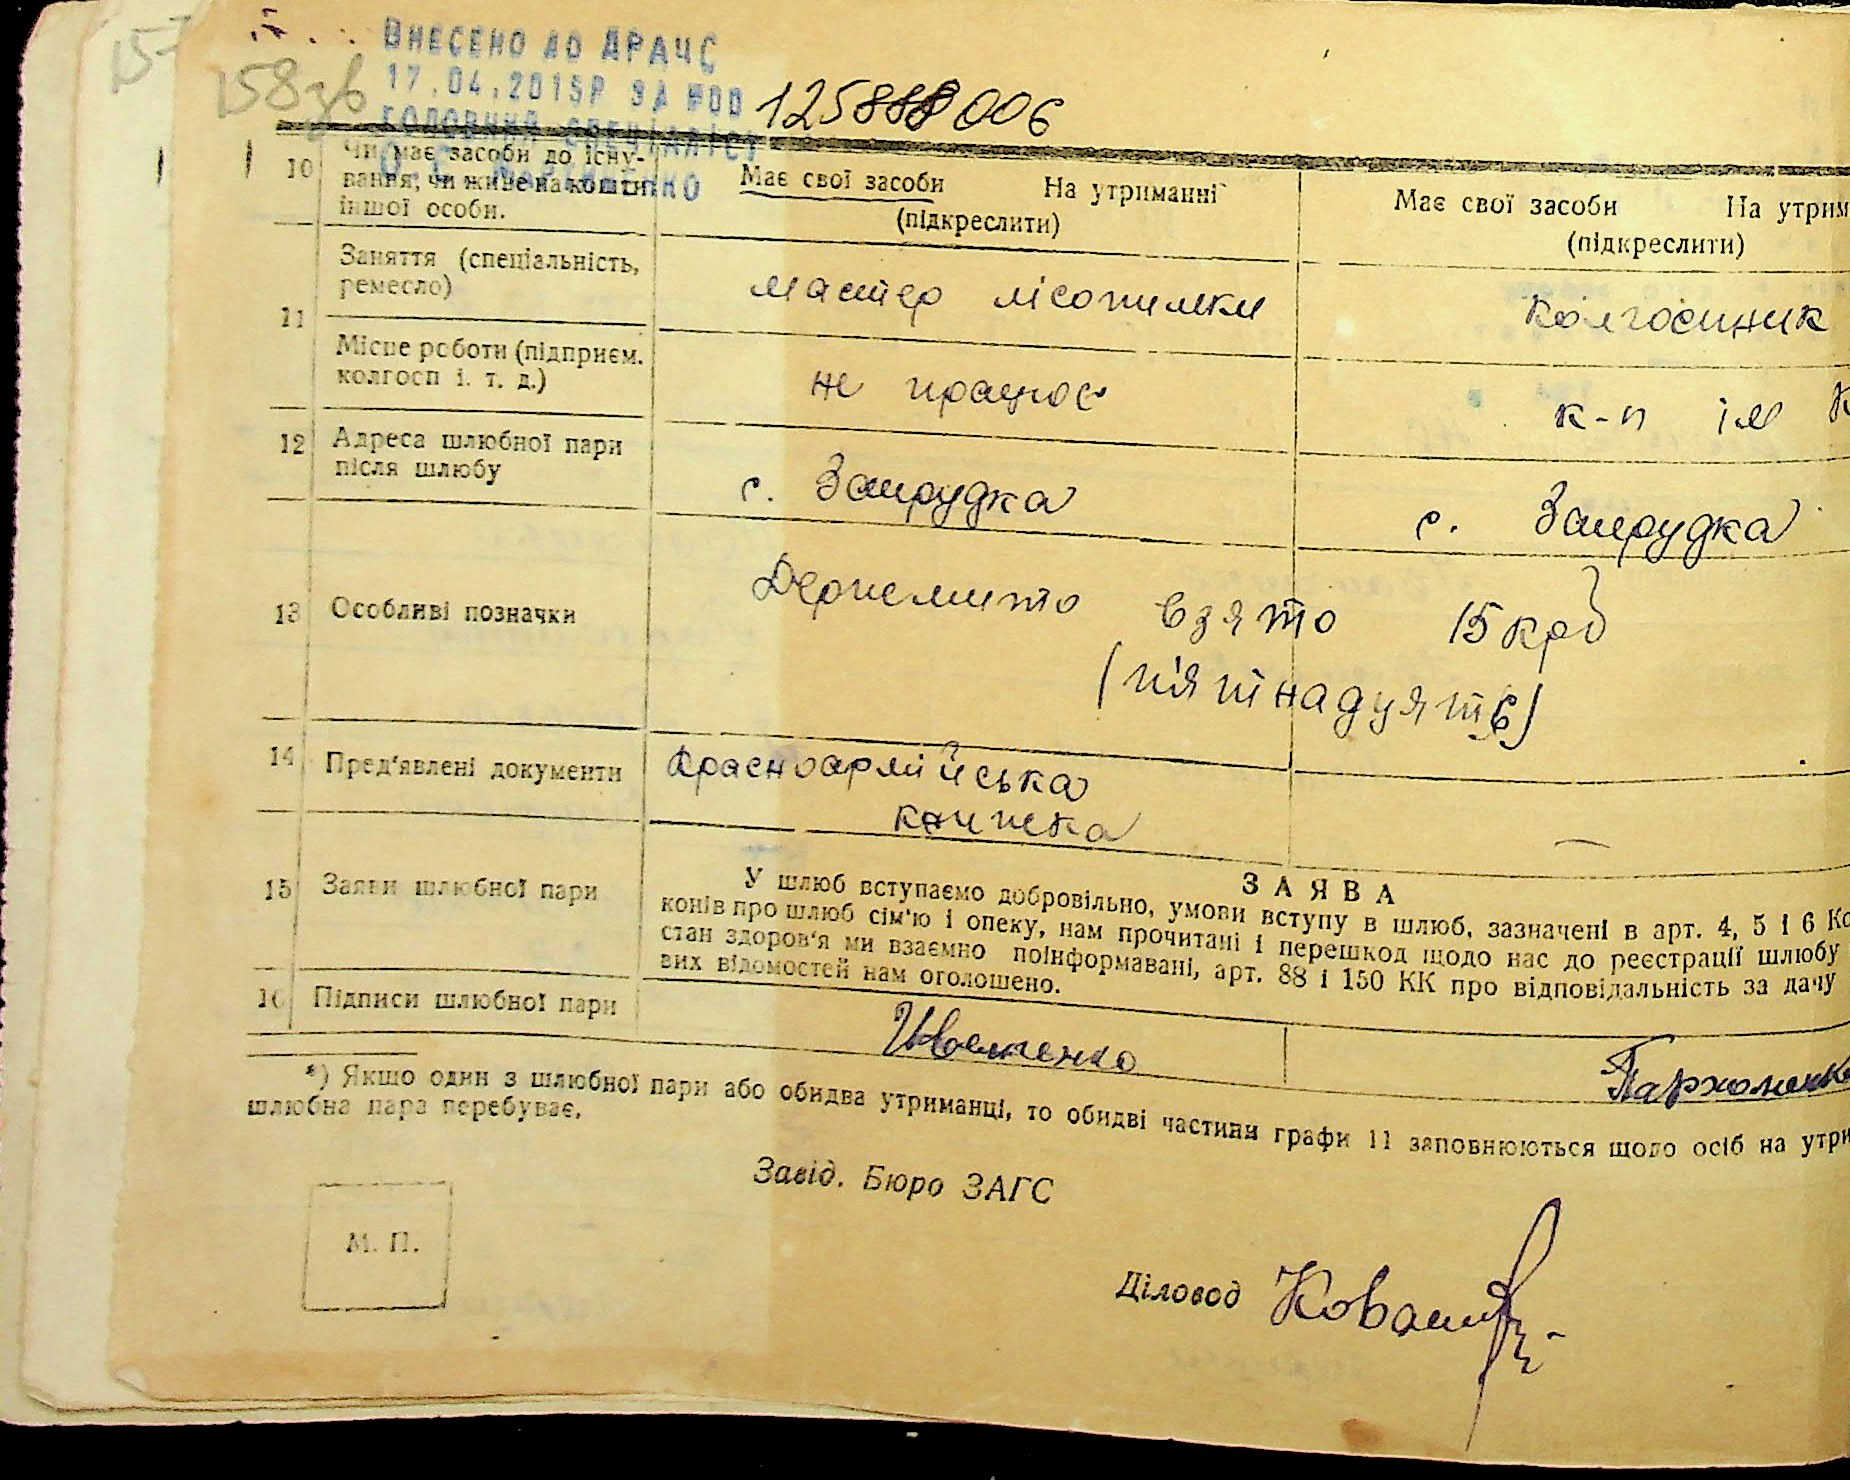 157
158зв
ВНЕСЕНО ДО ДРАЦС
17.04.2015Р ЗА №00 125888006
ГОЛОВНИЙ СПЕЦІАЛІСТ
10 Чи має засоби до існу-
вання, чи живе на кошти
іншої особи.
Має свої засоби На утриманні
(підкреслити)
Має свої засоби На утрим
(підкреслити)
11 Заняття (спеціальність,
ремесло)
мастер лісопилки
колгоспник
Місце роботи (підприєм.
колгосп і. т. д.)
не працює
к-п ім К
12 Адреса шлюбної пари
після шлюбу
с. Запрудка
с. Запрудка
13 Особливі позначки
Держмито взято 15 крб
(п'ятнадцять)
14 Пред'явлені документи
Красноармійська
книжка
—
15 Заяви шлюбної пари
ЗАЯВА
У шлюб вступаємо добровільно, умови вступу в шлюб, зазначені в арт. 4, 5 і 6 Ко
конів про шлюб сім'ю і опеку, нам прочитані і перешкод щодо нас до реєстрації шлюбу
стан здоров'я ми взаємно поінформавані, арт. 88 і 150 КК про відповідальність за дачу
вих відомостей нам оголошено.
16 Підписи шлюбної пари
Пархоменко
*) Якщо один з шлюбної пари або обидва утриманці, то обидві частини графи 11 заповнюються щодо осіб на утри
шлюбна пара перебуває.
Завід. Бюро ЗАГС
М. П.
Діловод